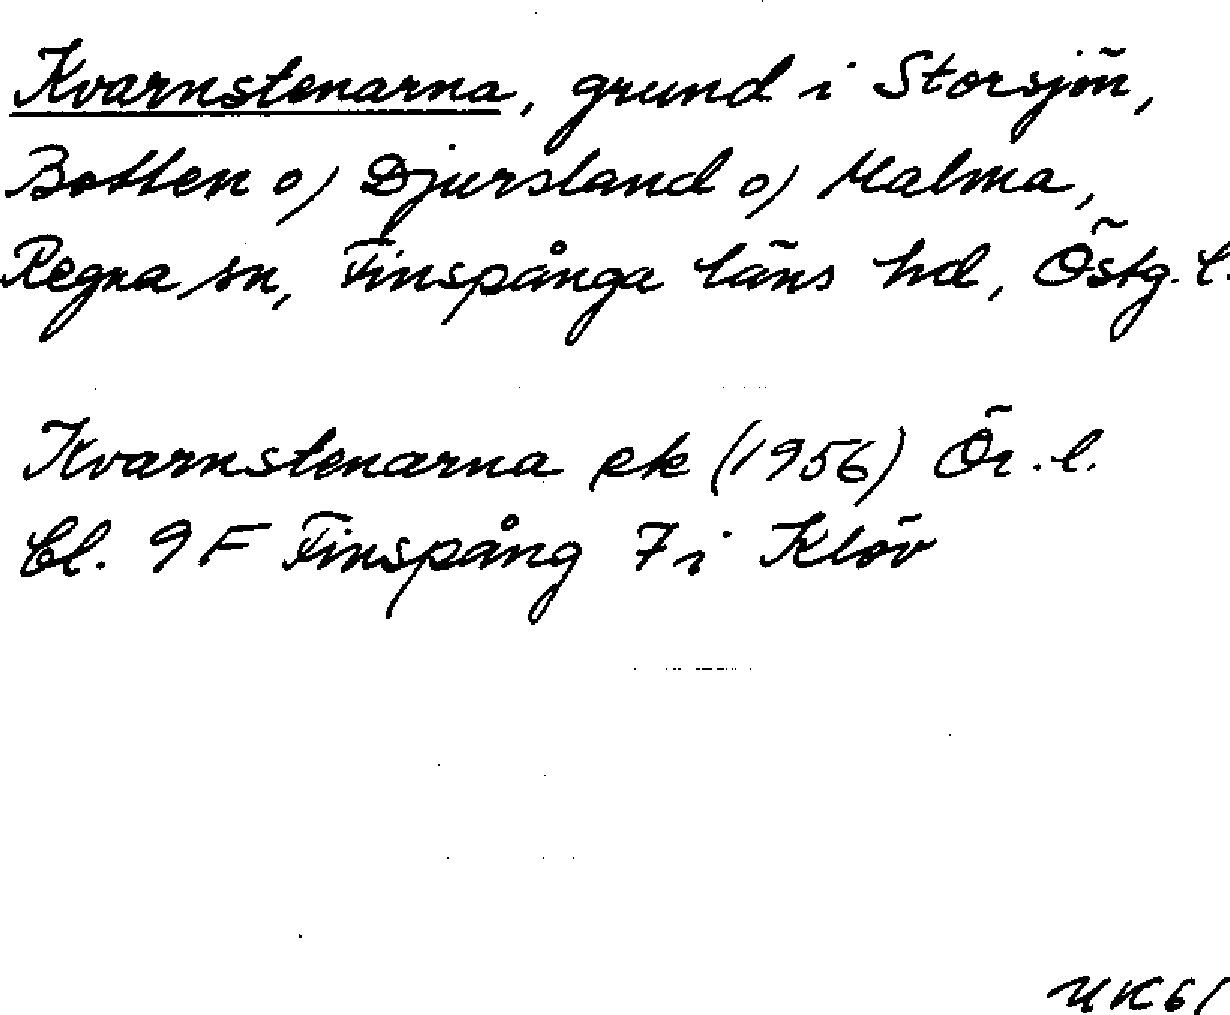 Kvarnstenarna, grund i Storsjön,
Botten o) Djursland o) Malma,
Regna sn, Finspånga läns hd, Östg. l.
Kvarnstenarna ek (1956) Ör. l.
Bl. 9 F Finspång 7 i Klöv
UK61